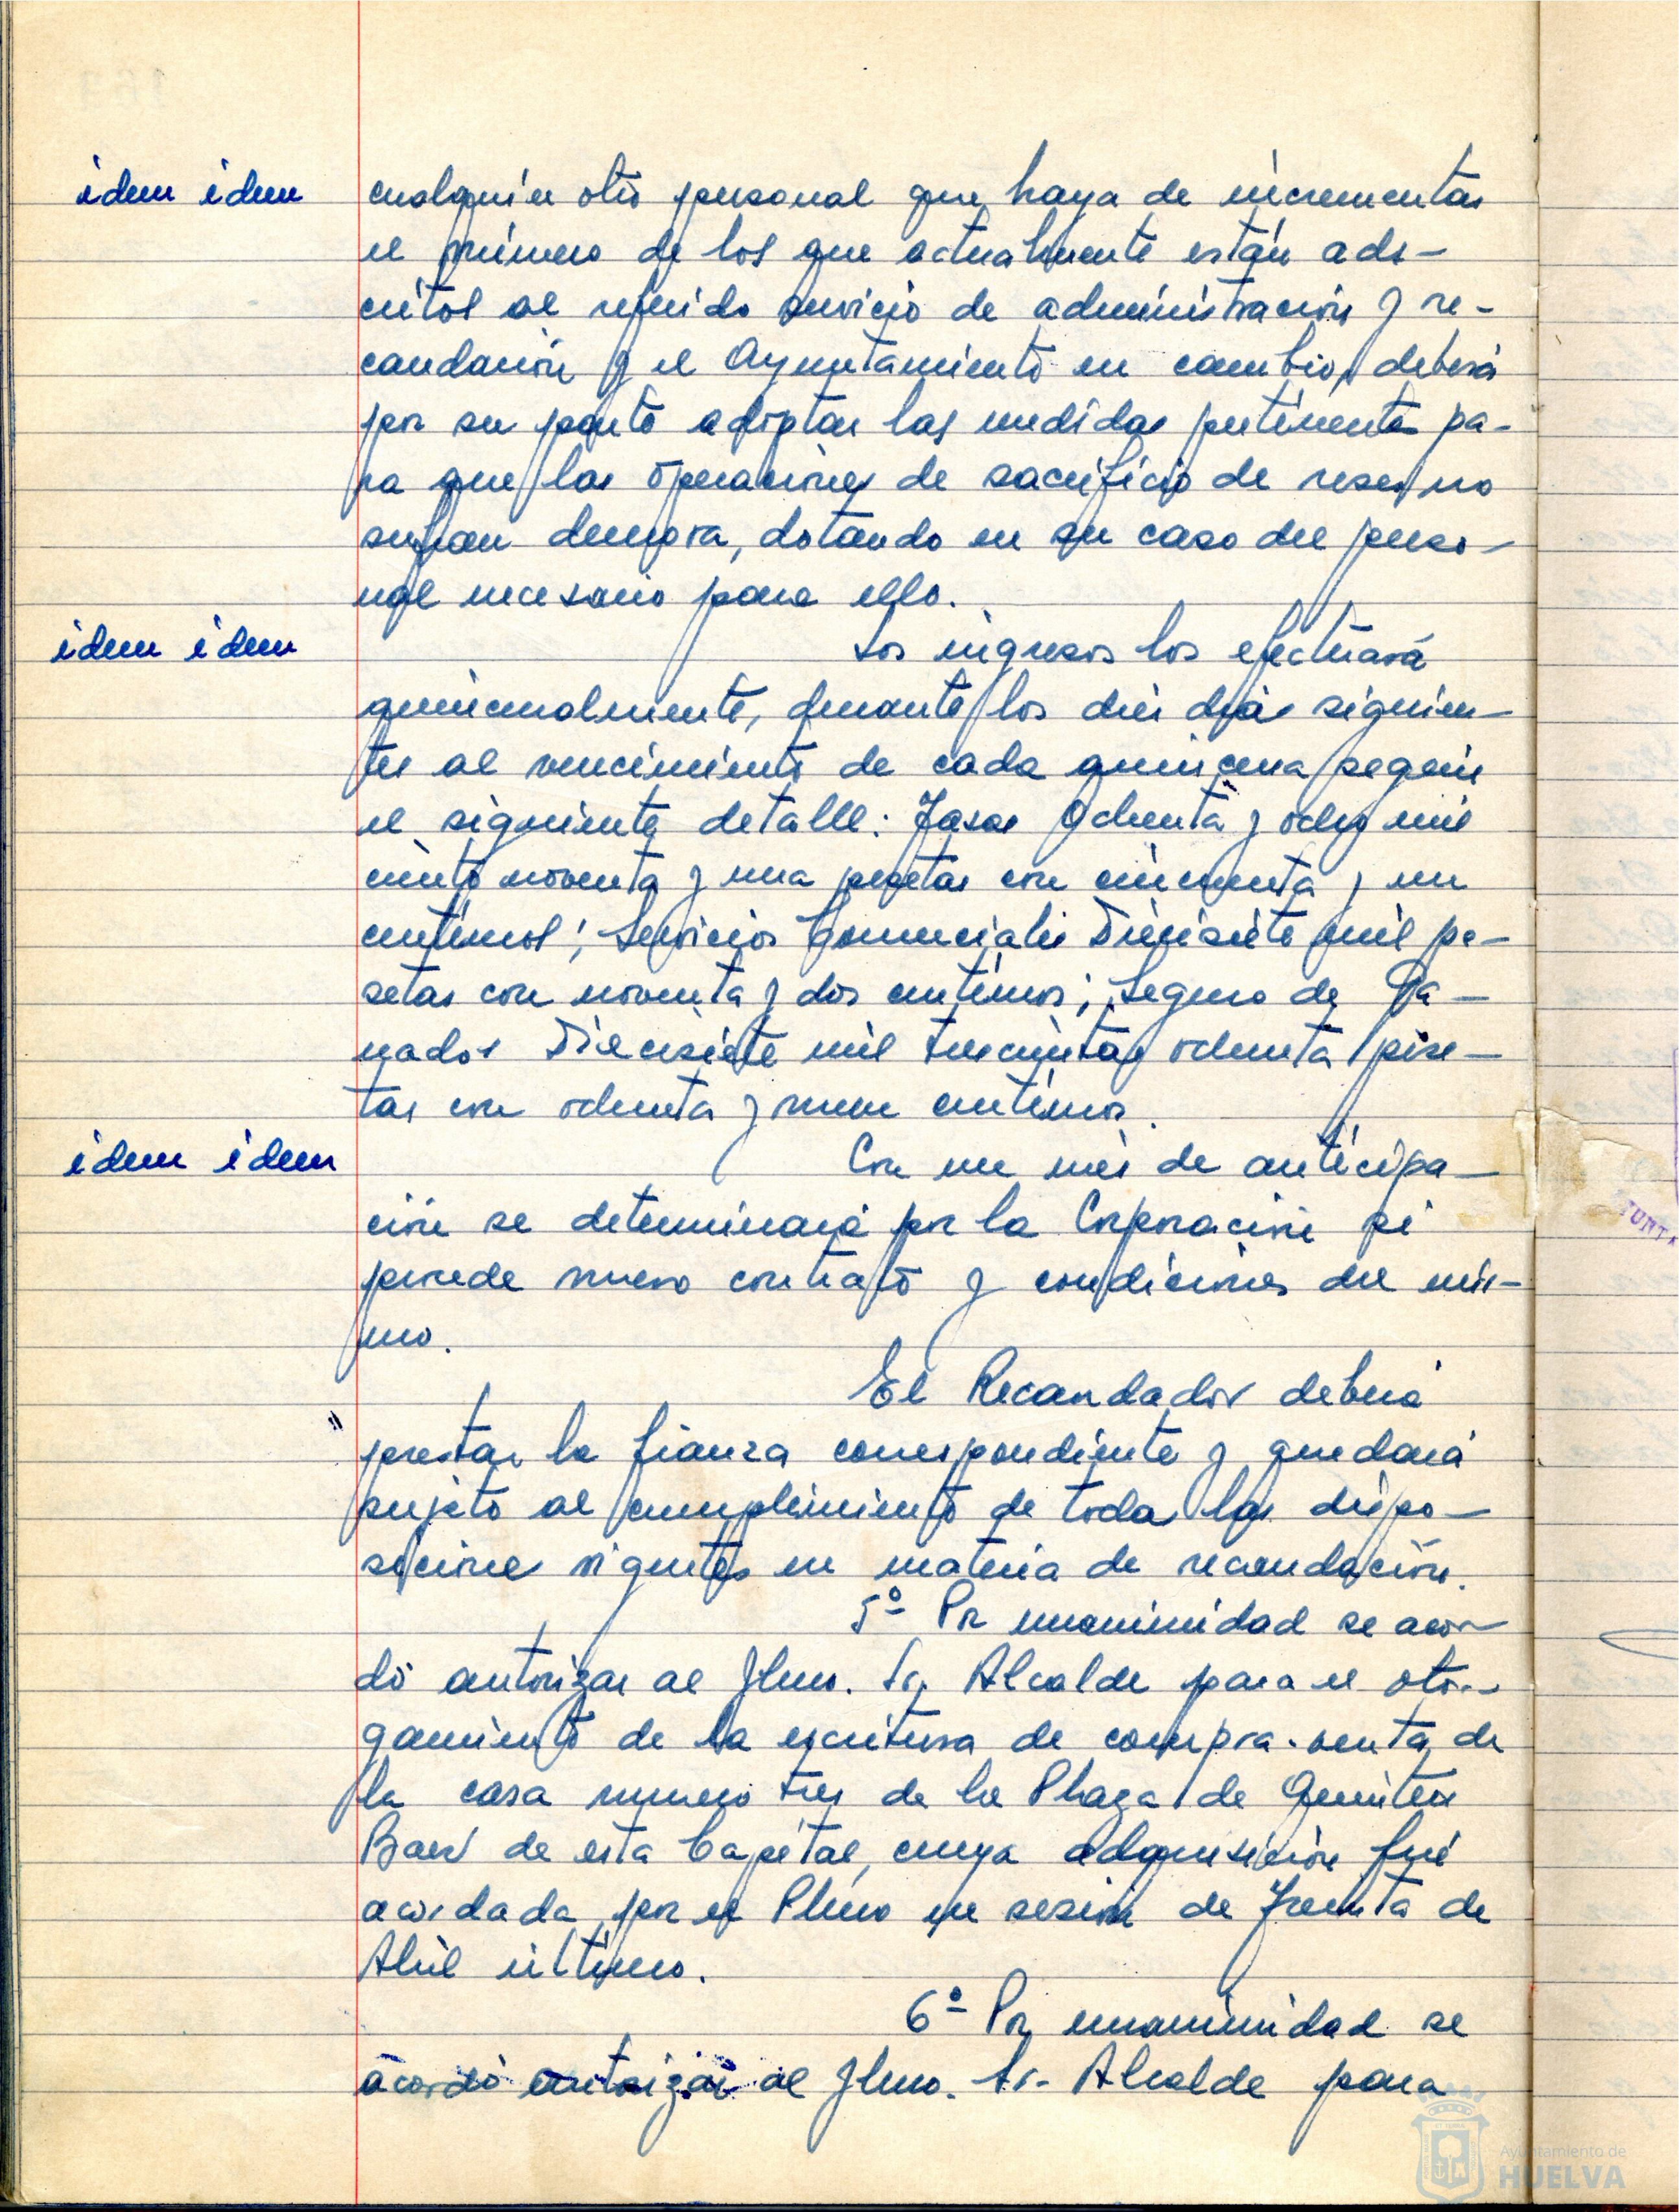 idem idem
cualquier otro personal que haya de incrementar
el número de los que actualmente están ads-
critos al referido servicio de administración y re-
caudación y el Ayuntamiento en cambio, deberá
por su parte adoptar las medidas pertinentes pa-
ra que las operaciones de sacrificio de reses no
sufran demora, dotando en su caso del perso-
nal necesario para ello.
idem idem
Los ingresos los efectuará
quincenalmente, durante los diez dias siguien-
tes al vencimiento de cada quincena segun
el siguiente detalle: Tasas Ochenta y ocho mil
ciento noventa y una pesetas con cincuenta y un
centimos; Servicios Comerciales Diecisiete mil pe-
setas con noventa y dos centimos; Seguro de Ga-
nados Diecisiete mil trescientas ochenta pese-
tas con ochenta y nueve centimos.
idem idem
Con un mes de anticipa-
ción se determinará por la Corporacion si
procede nuevo contrato y condiciones del mis-
mo.
El Recaudador deberá
"
prestar la fianza correspondiente y quedará
sujeto al cumplimiento de todas las dispo-
siciones vigentes en materia de recaudación.
5º Por unanimidad se acor-
dó autorizar al Ilmo. Sr. Alcalde para el otor-
gamiento de la escritura de compra-venta de
la casa numero tres de la Plaza de Quintero
Baez de esta Capital, cuya adquisición fué
acordada por el Pleno en sesion de Treinta de
Abril último.
6º Por unanimidad se
acordó autorizar al Ilmo. Sr. Alcalde para
Ayuntamiento de
HUELVA